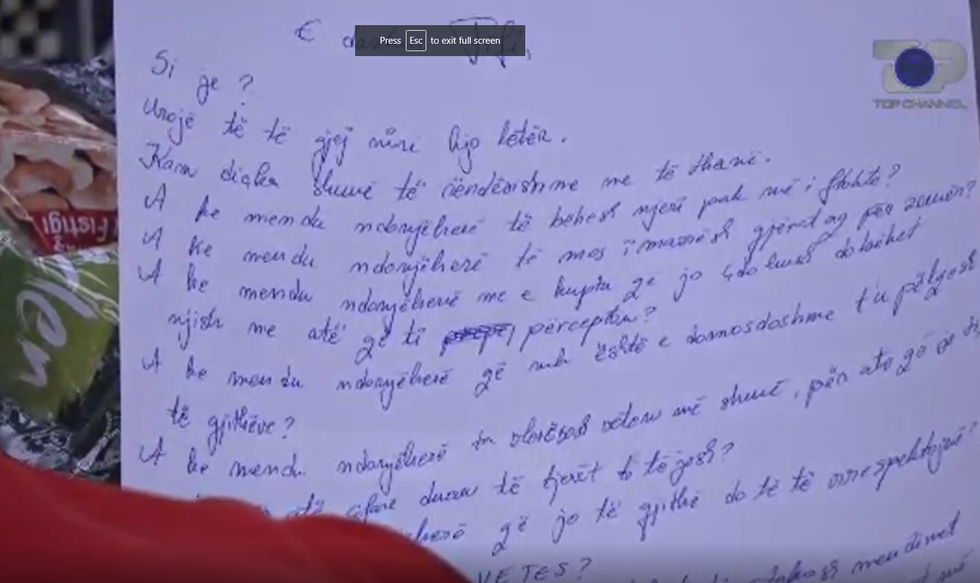 E dashur
Press Esc to exit full screen
TOP CHANNEL
Si je ?
Uroj të të gjej mirë kjo letër.
Kam diçka shumë të rëndësishme me të thanë.
A ke mendu ndonjëherë të bëhesh njeri pak më i ftohtë?
A ke mendu ndonjëherë të mos i marrësh gjërat aq për zemër?
A ke mendu ndonjëherë me e kuptu që jo çdo kush do bëhet
njish me atë që ti percepton?
A ke mendu ndonjëherë që nuk është e domosdoshme t'u pëlqesh
të gjithëve?
A ke mendu ndonjëherë ta vlerësosh veten më shumë, për ato që je
atë çfarë duan të tjerët ti të jesh?
që jo të gjithë do të të rrespektojnë?
VETES?
mendimet
Fistigi